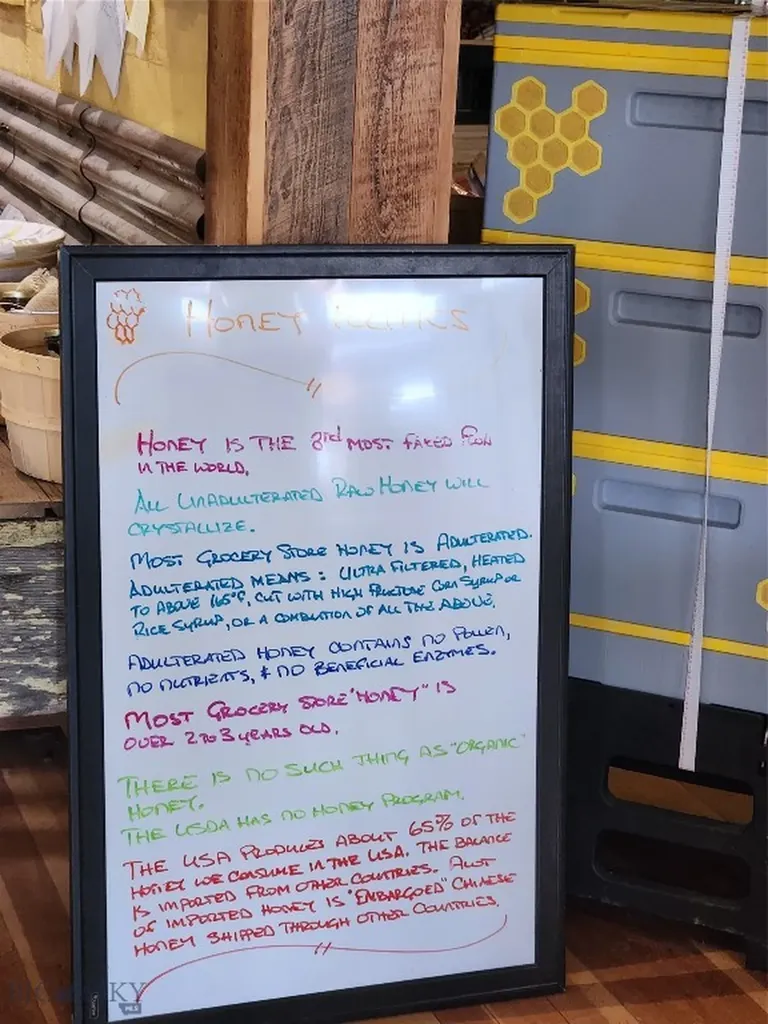 HONEY
HONEY IS THE 3rd MOST FAKED FOOD
IN THE WORLD.
ALL UNADULTERATED RAW HONEY WILL
CRYSTALLIZE.
MOST GROCERY STORE HONEY IS ADULTERATED.
ADULTERATED MEANS: ULTRA FILTERED, HEATED
TO ABOVE 165°F, CUT WITH HIGH FRUCTOSE CORN SYRUP OR
RICE SYRUP, OR A COMBINATION OF ALL THE ABOVE.
ADULTERATED HONEY CONTAINS NO POLLEN,
NO NUTRIENTS, & NO BENEFICIAL ENZYMES.
MOST GROCERY STORE "HONEY" IS
OVER 2 TO 3 YEARS OLD.
THERE IS NO SUCH THING AS "ORGANIC"
HONEY.
THE USDA HAS NO HONEY PROGRAM.
THE USA PRODUCES ABOUT 65% OF THE
HONEY WE CONSUME IN THE USA. THE BALANCE
IS IMPORTED FROM OTHER COUNTRIES. A LOT
OF IMPORTED HONEY IS "EMBARGOED" CHINESE
HONEY SHIPPED THROUGH OTHER COUNTRIES.